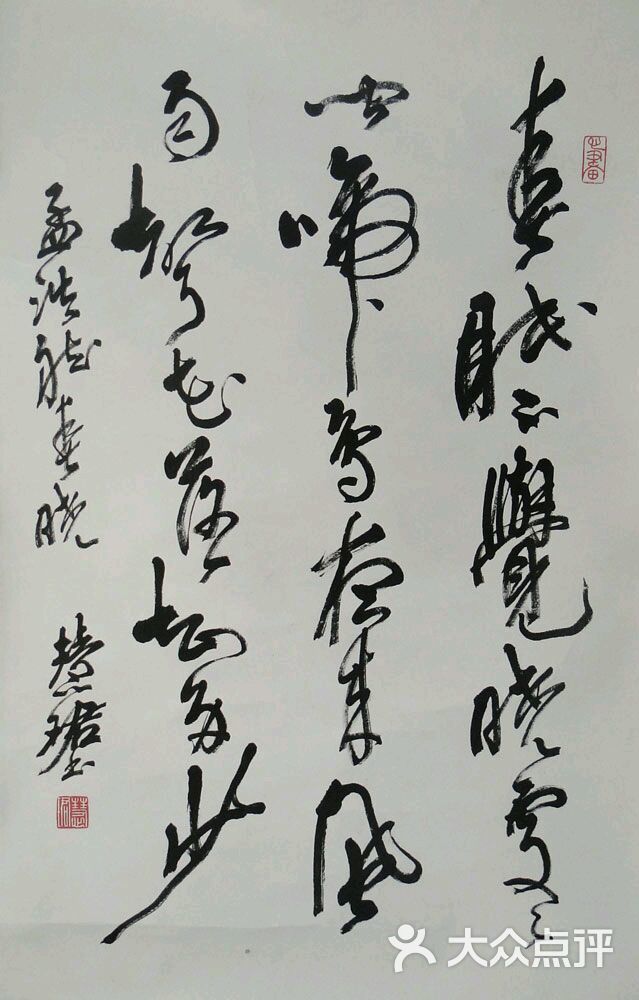 春眠不覺曉處々
聞啼鳥夜来風
雨聲花落知多少
孟浩然春曉
慧
大众点评